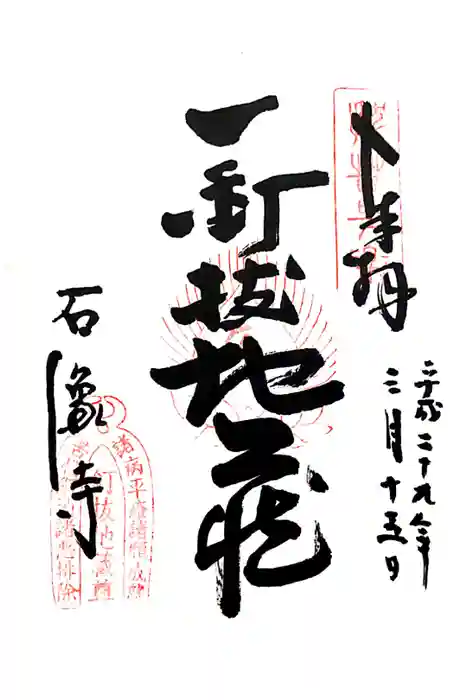 奉拝
平成二十九年
三月十五日
釘抜地蔵
石像寺
諸病平癒諸願成就
釘抜地蔵尊